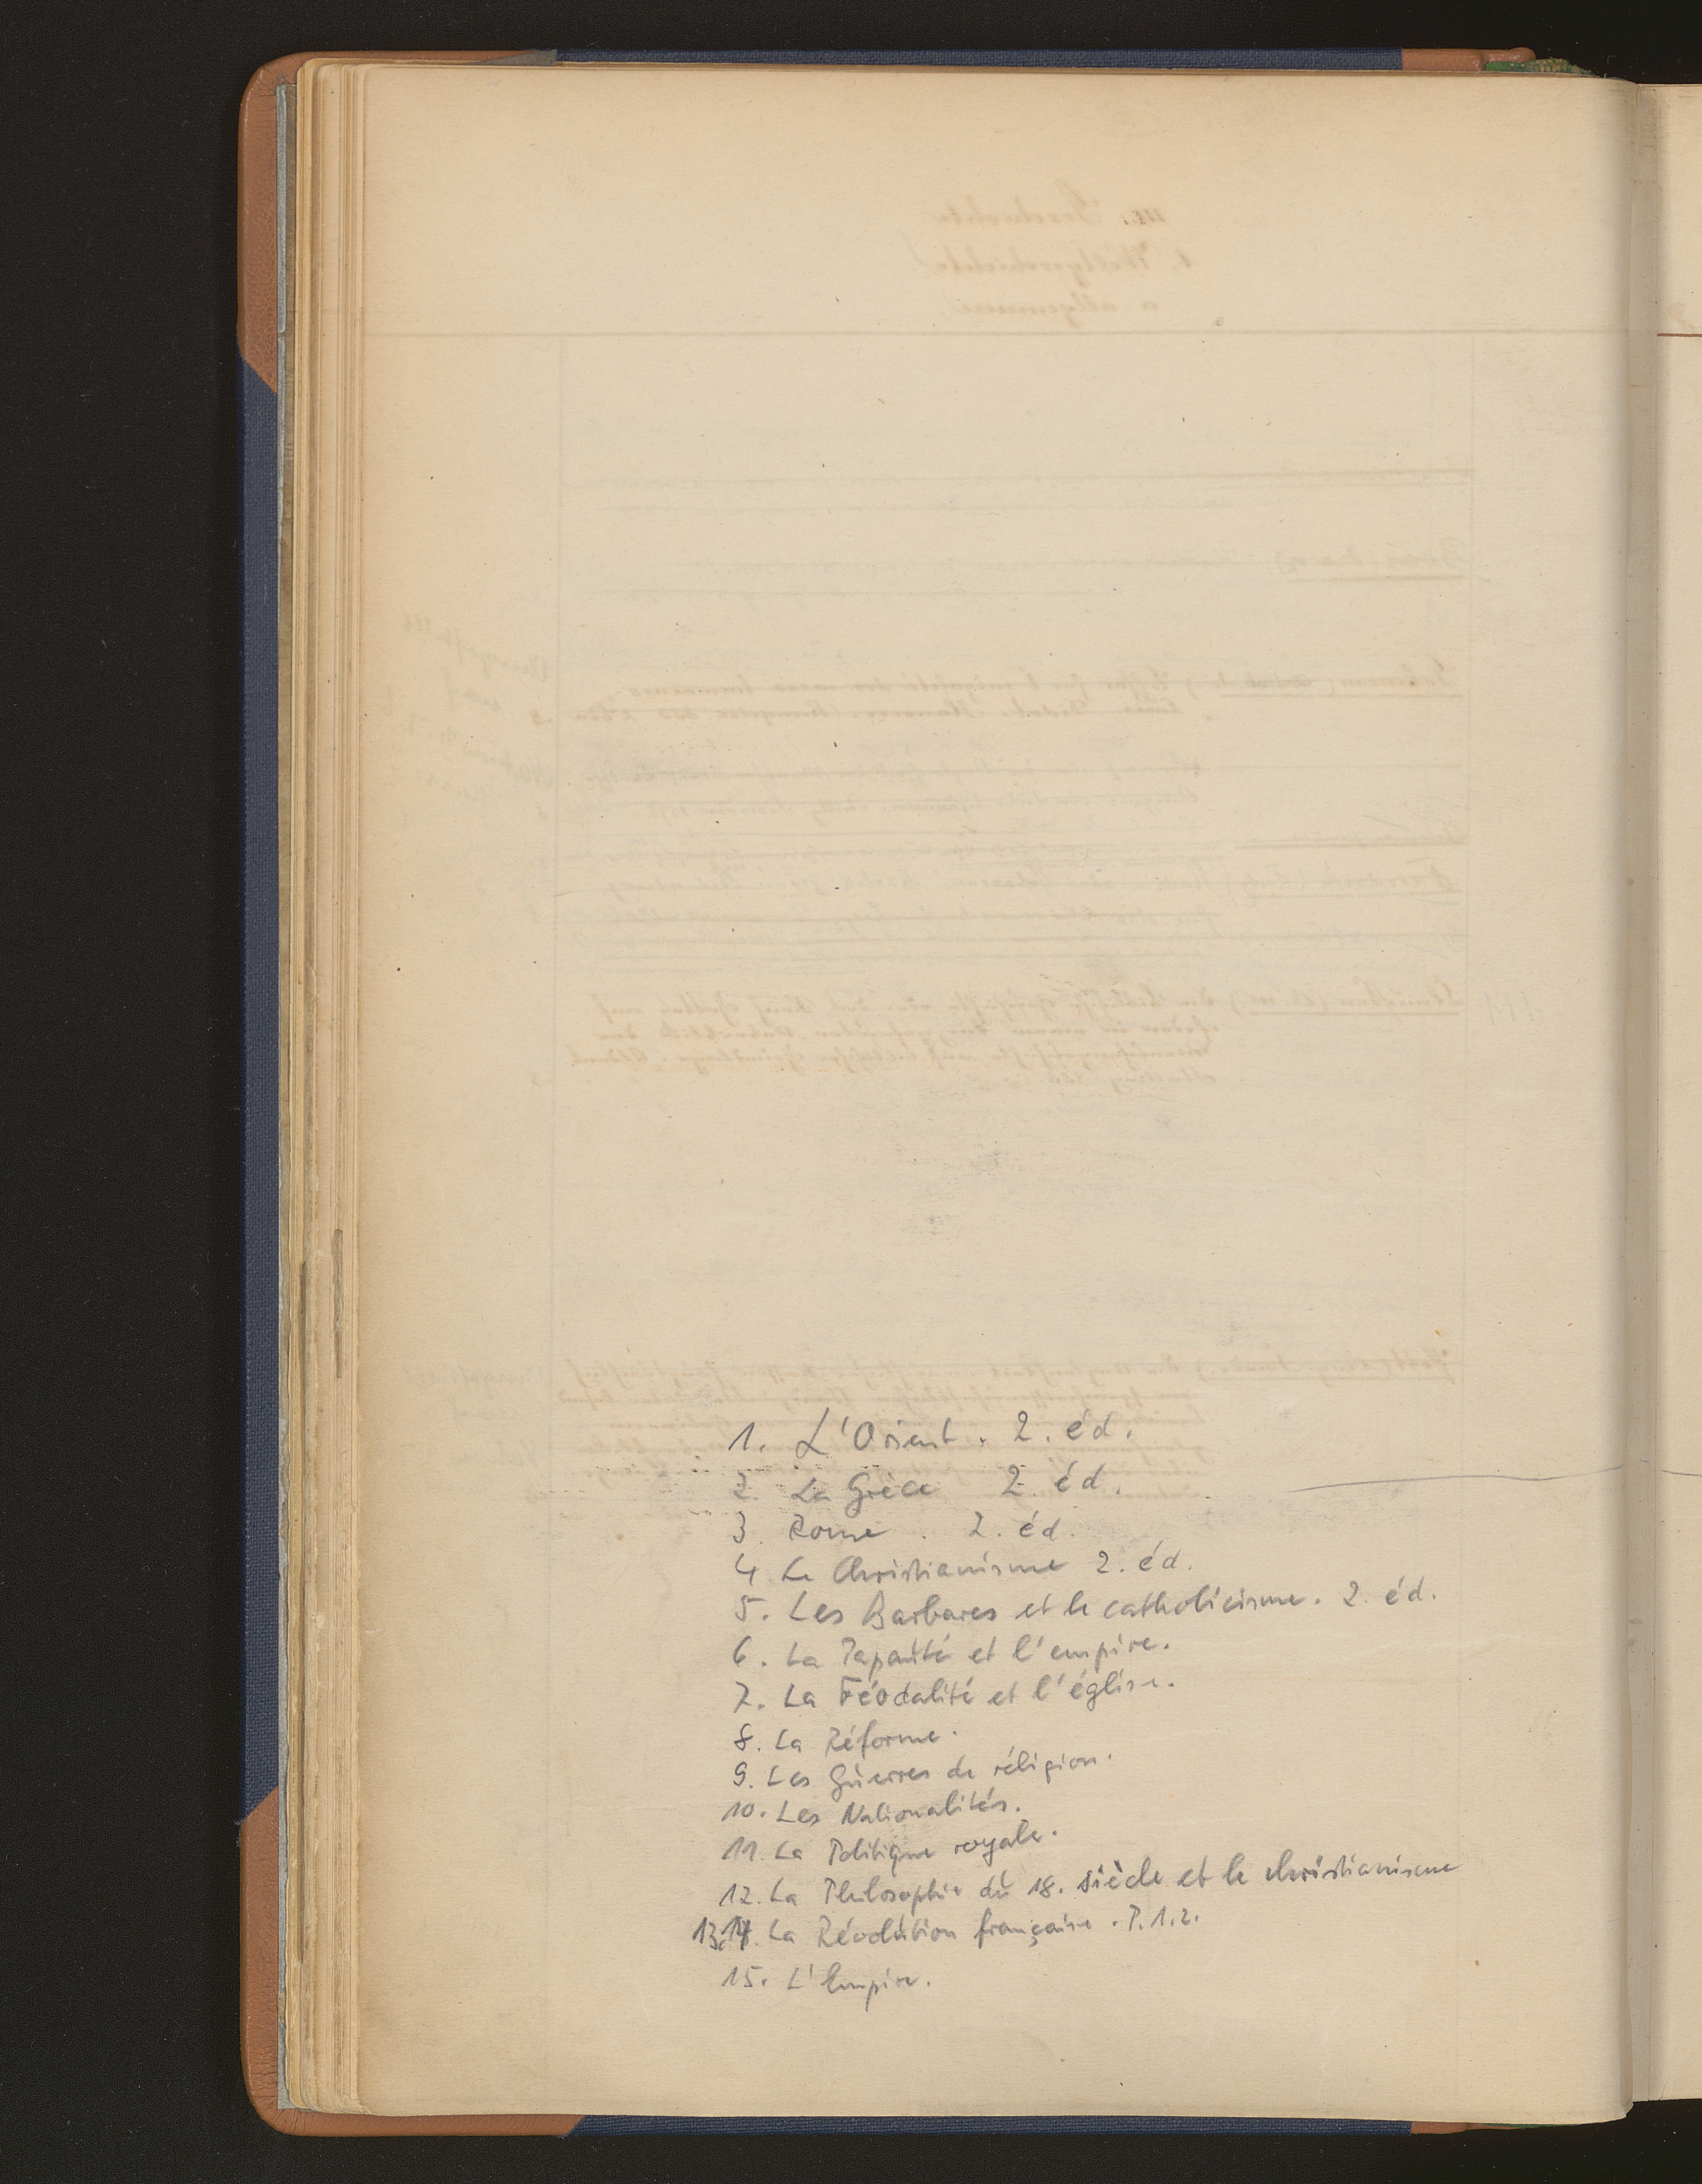 1. L'Orient. 2. éd.
2. La Grèce 2. éd.
3. Rome. 2. éd.
4. Le Christianisme 2. éd.
5. Les Barbares et le catholicisme. 2. éd.
6. La Papauté et l'empire.
7. La Féodalité et l'église.
8. La Réforme.
9. Les Guerres de réligion.
10. Les Nationalités.
11. La Politique royale.
12. La Philosophie du 18. siècle et le christianisme
13.14. La Révolution française. P. 1.2.
15. L'Empire.